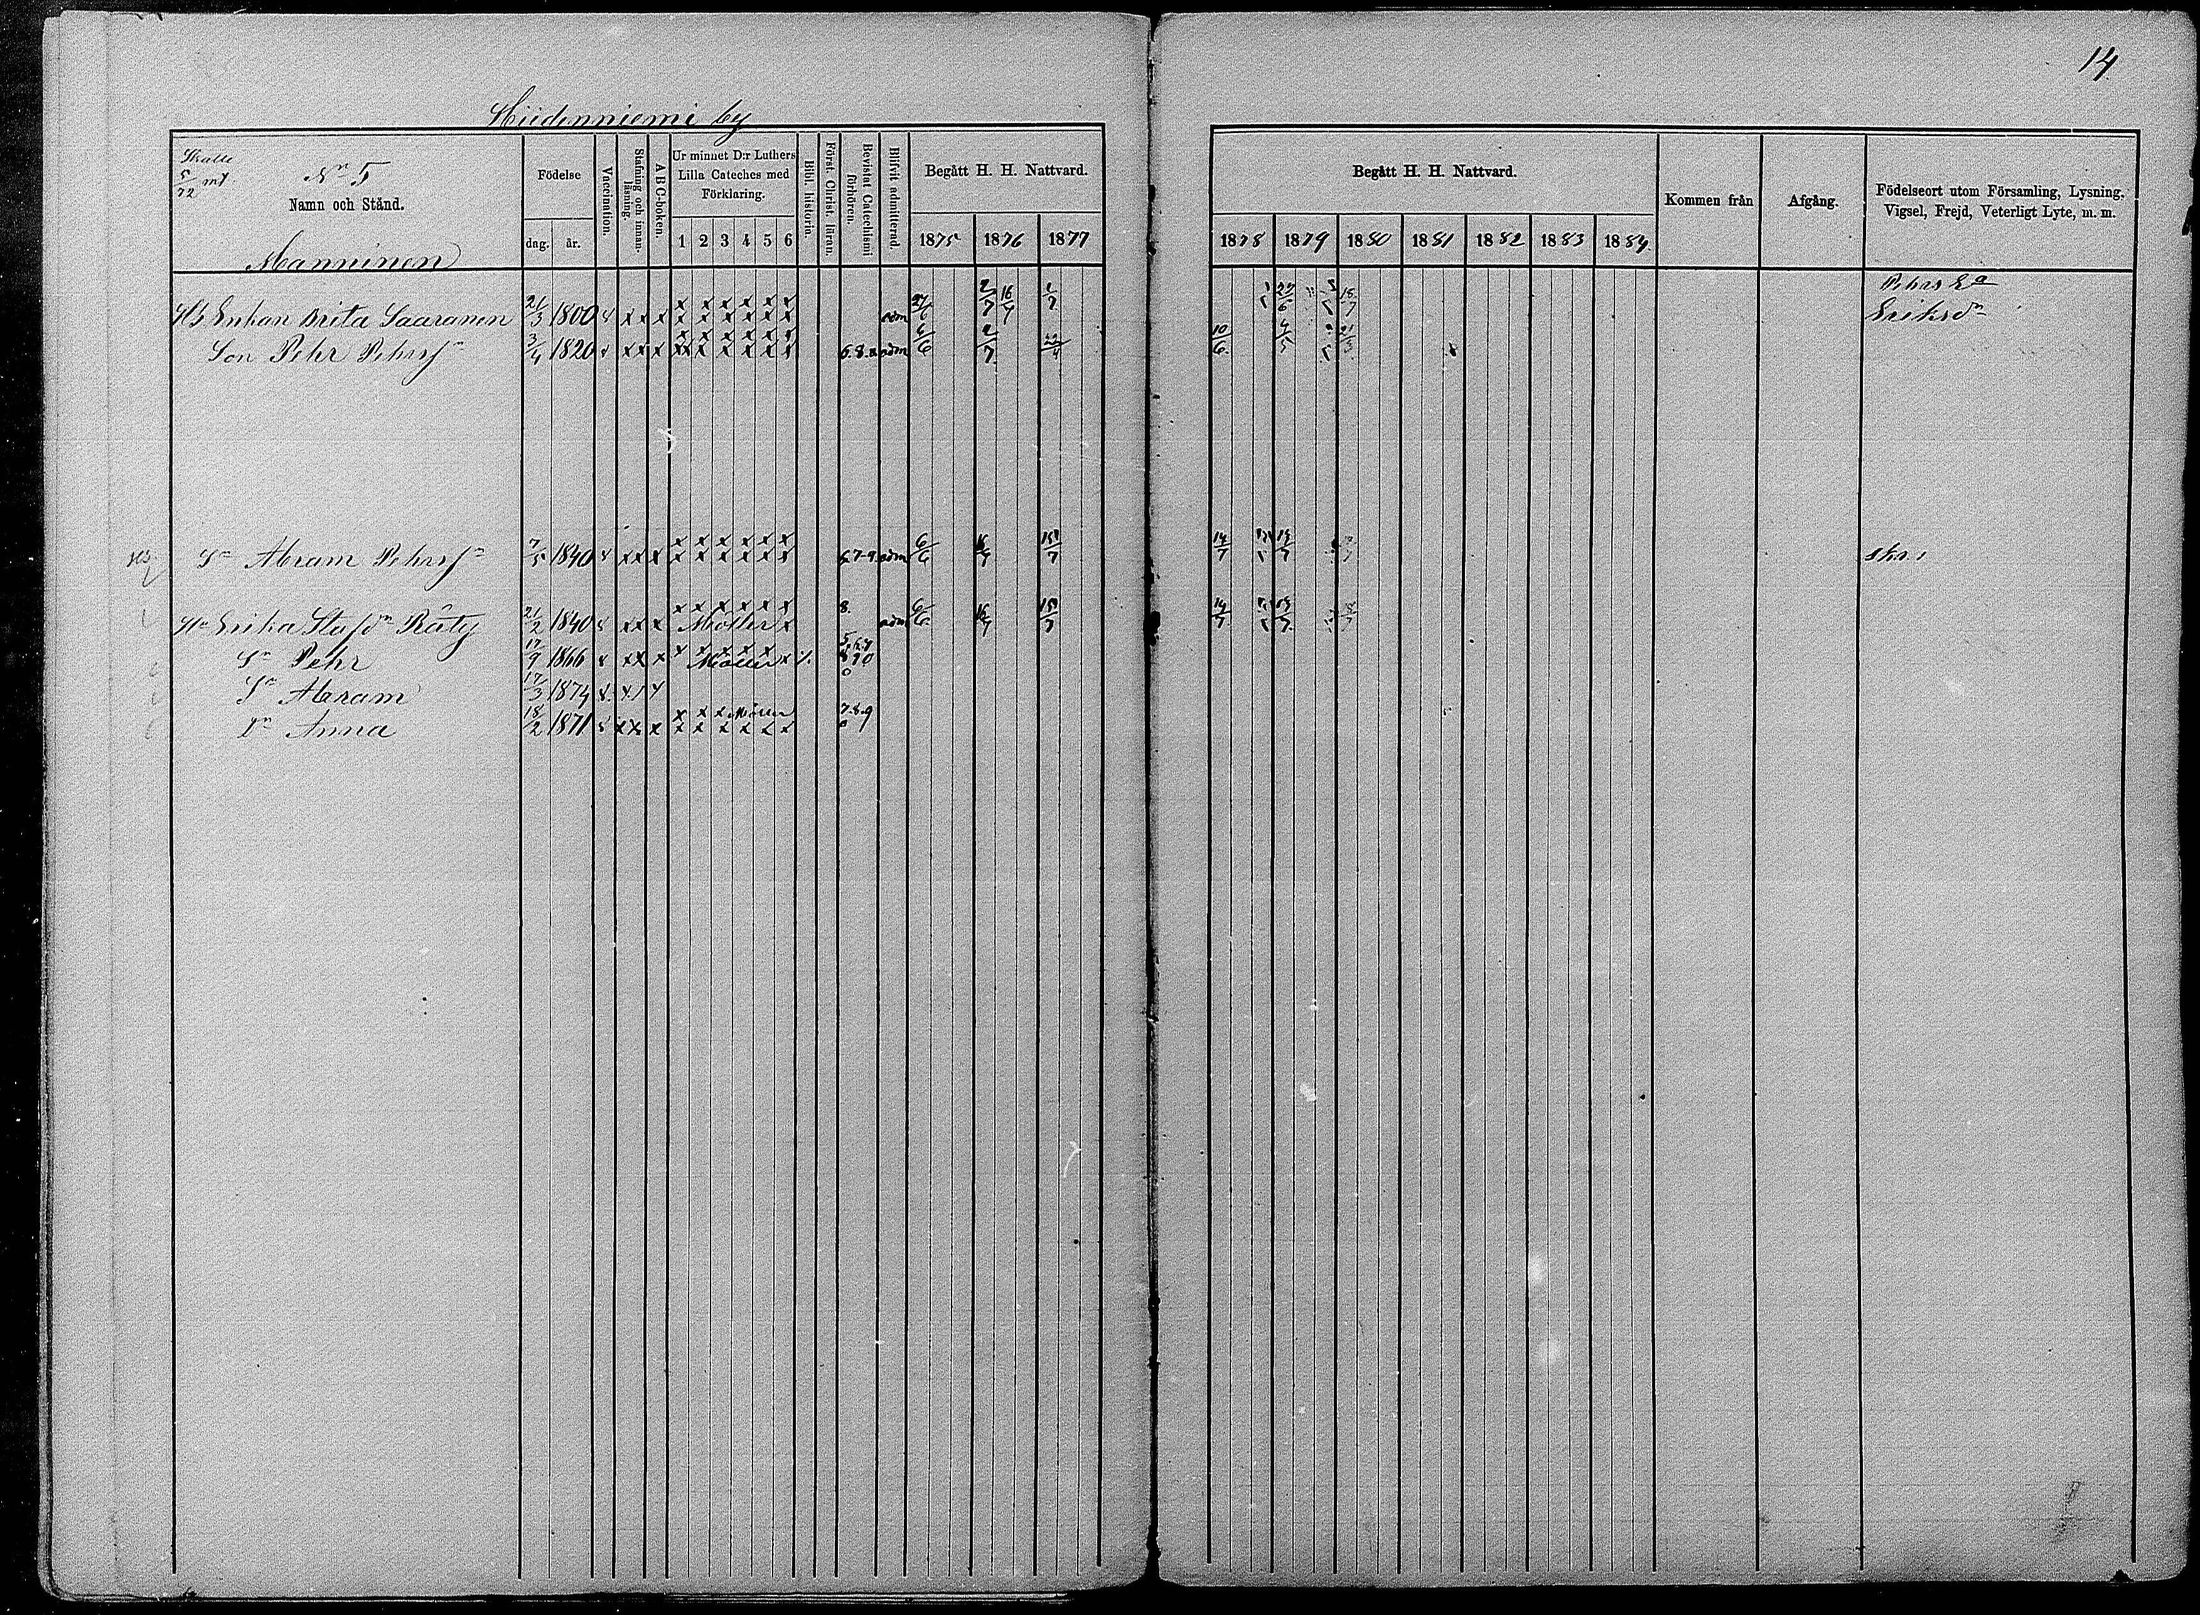 14
Hiidenniemi by
Skatte
5/72 mt
No 5
Namn och Stånd.
Manninen
Födelse
dag. år.
Vaccination.
Stafning och innan-läsning.
A B C-boken.
Ur minnet D:r Luthers
Lilla Cateches med
Förklaring.
1 2 3 4 5 6
Bibl. historia.
Först. Christ. läran.
Bevistat Catechismi förhören.
Blifvit admitterad
Begått H. H. Nattvard.
1875 1876 1877
Begått H. H. Nattvard.
1878 1879 1880 1881 1882 1883 1884
Kommen från
Afgång.
Födelseort utom Församling, Lysning,
Vigsel, Frejd, Veterligt Lyte, m. m.
Enkan Brita Saaranen 21/3 1800 x x x x x x x x x adm 2/7 16/7 1/7 Eriksdr
Son Pehr Pehrsn 3/4 1820 x x x x x x x x x 6.8. adm 6/6 2/7 10/6 4/5 21/3
Sn Abram Pehrsn 7/5 1840 x x x x x x x x x 6.7.9. adm 6/6 16/7 15/7 14/7 13/7
Hu Erika Stafdr Räty 21/2 1840 x x x Möller x 8. adm 6/6 16/7 15/7 14/7 13/7
Sn Pehr 17/9 1866 x x x x Möller x
Sn Abram 17/3 1874
Dr Anna 18/2 1871 x x x x x x x x x 7.8.9